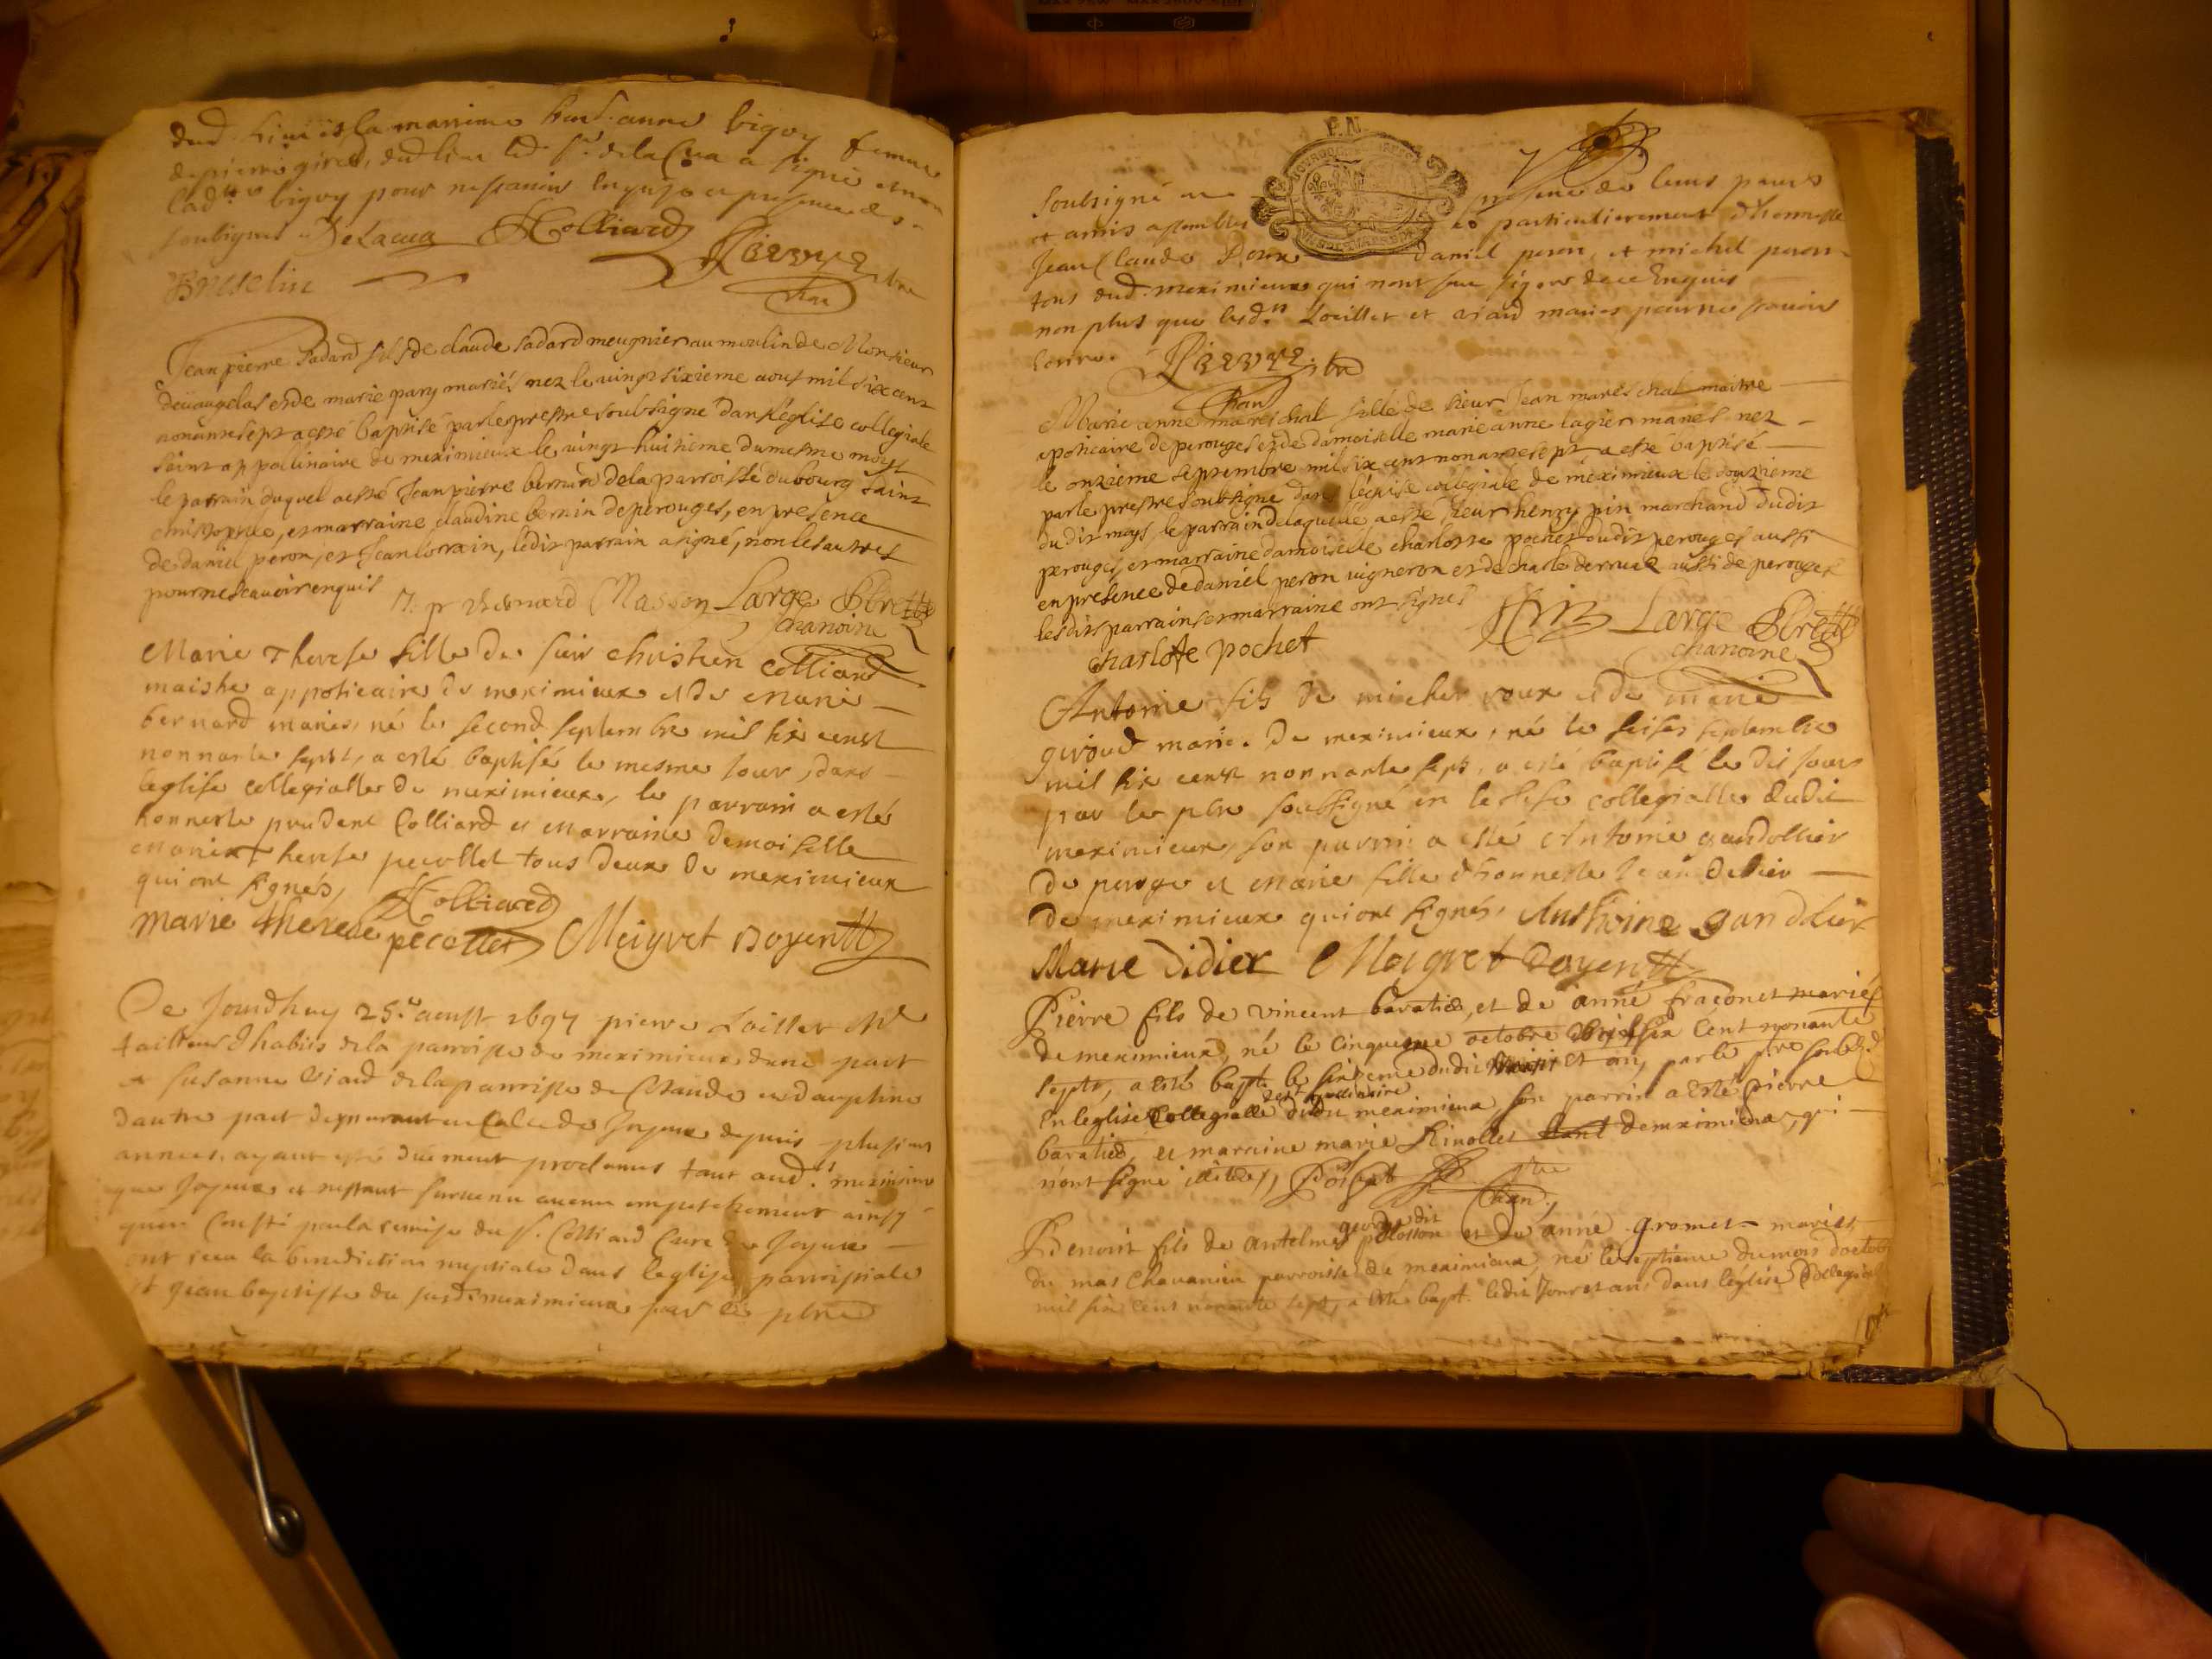 dud. lieu et la marrine hon.t anne bigoy femme
de pierre girod, dud lieu led. s.r dela Cua a signé et non
lad.tte bigoy pour ne scavoir enquise en presence des
soubsignes Delacua Colliard Pierre pbre
Bruselin chan
Jean pierre Sadard fils de claude sadard meugnier au moulin de Monsieur
de vaugelas et de marie pary mariés nez le vingt sixieme aoust mil six cent
nonante sept a esté baptisé par le prestre soubsigné dans l'eglise collegiale
saint appollinaire de meximieux le vingt huitieme du mesme moys
le parrain duquel a esté Jean pierre bernard de la parroisse du bourg saint
christophle, et marraine claudine bernin de perouges, en presence
de daniel peron, et Jean lorrain, ledit parrain a signé, non les autres
pour ne scavoir enquis J. pr Bernard Masson Large Pbre
chanoine
Marie Therese fille de sieur christien Colliard
maistre appoticaire de meximieux et de Marie
bernard mariés, né le second septembre mil six cent
nonnante sept, a esté baptisé le mesme jour, dans
leglise collegialle de meximieux, le parrain a esté
honneste prudent Colliard et marraine demoiselle
marie Therese pecollet tous deux de meximieux
qui ont signés, Colliard
marie therese pecollet Meigret Doyen
Ce Jourdhuy 25.e aoust 1697 pierre Loillet M.e
tailleur dhabits de la parroisse de meximieux dune part
et susanne Viard de la parroisse de en dauphine
dautre part demeurant au de Joyeux depuis plusieurs
années, ayant esté duement proclamés tant aud.t meximieux
que Joyeux et nestant survenu aucun empeschement ainsy
quil Conste par la remise du s.r Colliard Curé de Joyeux
ont receu la benediction nuptiale dans leglise parroissiale
st Jean baptiste du susd. meximieux par le pbre
P.N.
soubsigné presence de leurs parens
et amis assemblés et particulierement d'honneste
Jean Claude Doux daniel peron, et michel peron
tous dud. meximieux qui nont sceu signer de ce Enquis
non plus que lesd.ts Loillet et viard mariés pour ne scavoir
Pierre pbre
chan
Marie anne mareschal fille de sieur Jean mareschal maitre
apoticaire de perouges et de damoiselle marie anne lagier mariés nez
le onzieme septembre mil six cent nonante sept a esté baptisé
par le prestre soubsigné dans l'eglise collegiale de meximieux le douzieme
dudit moys le parrain de laquelle a esté sieur henry pin marchand dudit
perouges, et marraine damoiselle charlotte pochet dudit perouges aussi
en presence de daniel peron vigneron et de charle derruaz aussi de perouges
lesdits parrains et marraine ont signés Pin Large Pbre
charlotte pochet chanoine
Antoine fils de michel roux et de marie
giroud mariés de meximieux, né le seises septembre
mil six cent nonnante sept, a esté baptisé le dit jour
par le pbre soussigné en leglise collegialle dudit
meximieux, son parrin a esté Antoine gandollier
de peroge et Marie fille d'honneste Jean Didier
de meximieux qui ont signés, Anthoine gandlier
Marie Didier Meigret Doyen
Pierre fils de vincent baratier et de anne fraconet mariés
de meximieux, né le cinquieme octobre mil six cent nonante
sept, a esté bapt. le sixieme dudit mois et an, par le pre soubz.é
en leglise Collegialle st Apollinaire dudit meximieux, son parrin a esté pierre
baratier, et marraine marie de meximieux, qui
n'ont signé illiterés, pbre
Chan.
Benoit fils de antelme george dit polosson et de anne gromet mariés
du mas Chavanieu parroisse de meximieux, né le septieme du mois doctob
mil six cent nonante sept, a esté bapt. ledit Jour et an dans léglise Collegial